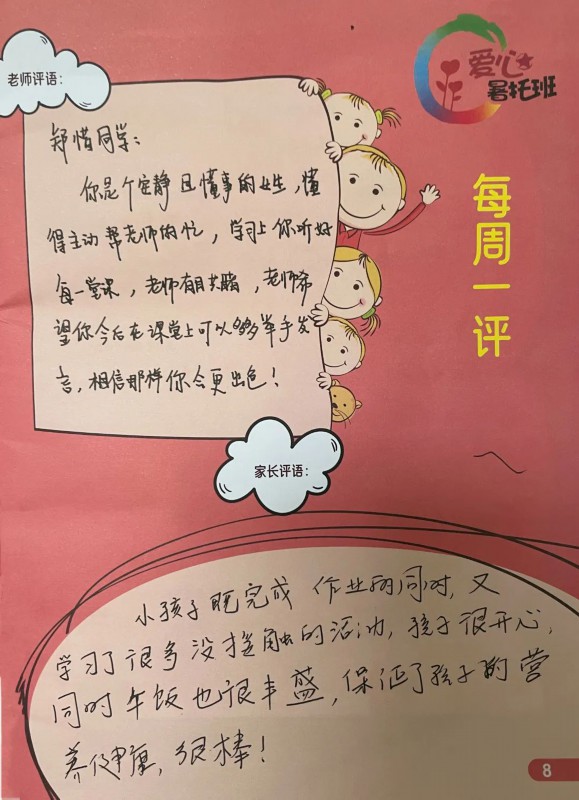 爱心
暑托班
每周一评
老师评语:
郑惜同学:
你是个安静且懂事的女生,懂
得主动帮老师的忙,学习上你听好
每一堂课,老师有目共睹,老师希
望你今后在课堂上可以多多举手发
言,相信那样你会更出色!
家长评语:
小孩子既完成 作业的同时,又
学习了很多没接触的活动,孩子很开心,
同时午饭也很丰盛,保证了孩子的营
养健康,很棒!
8